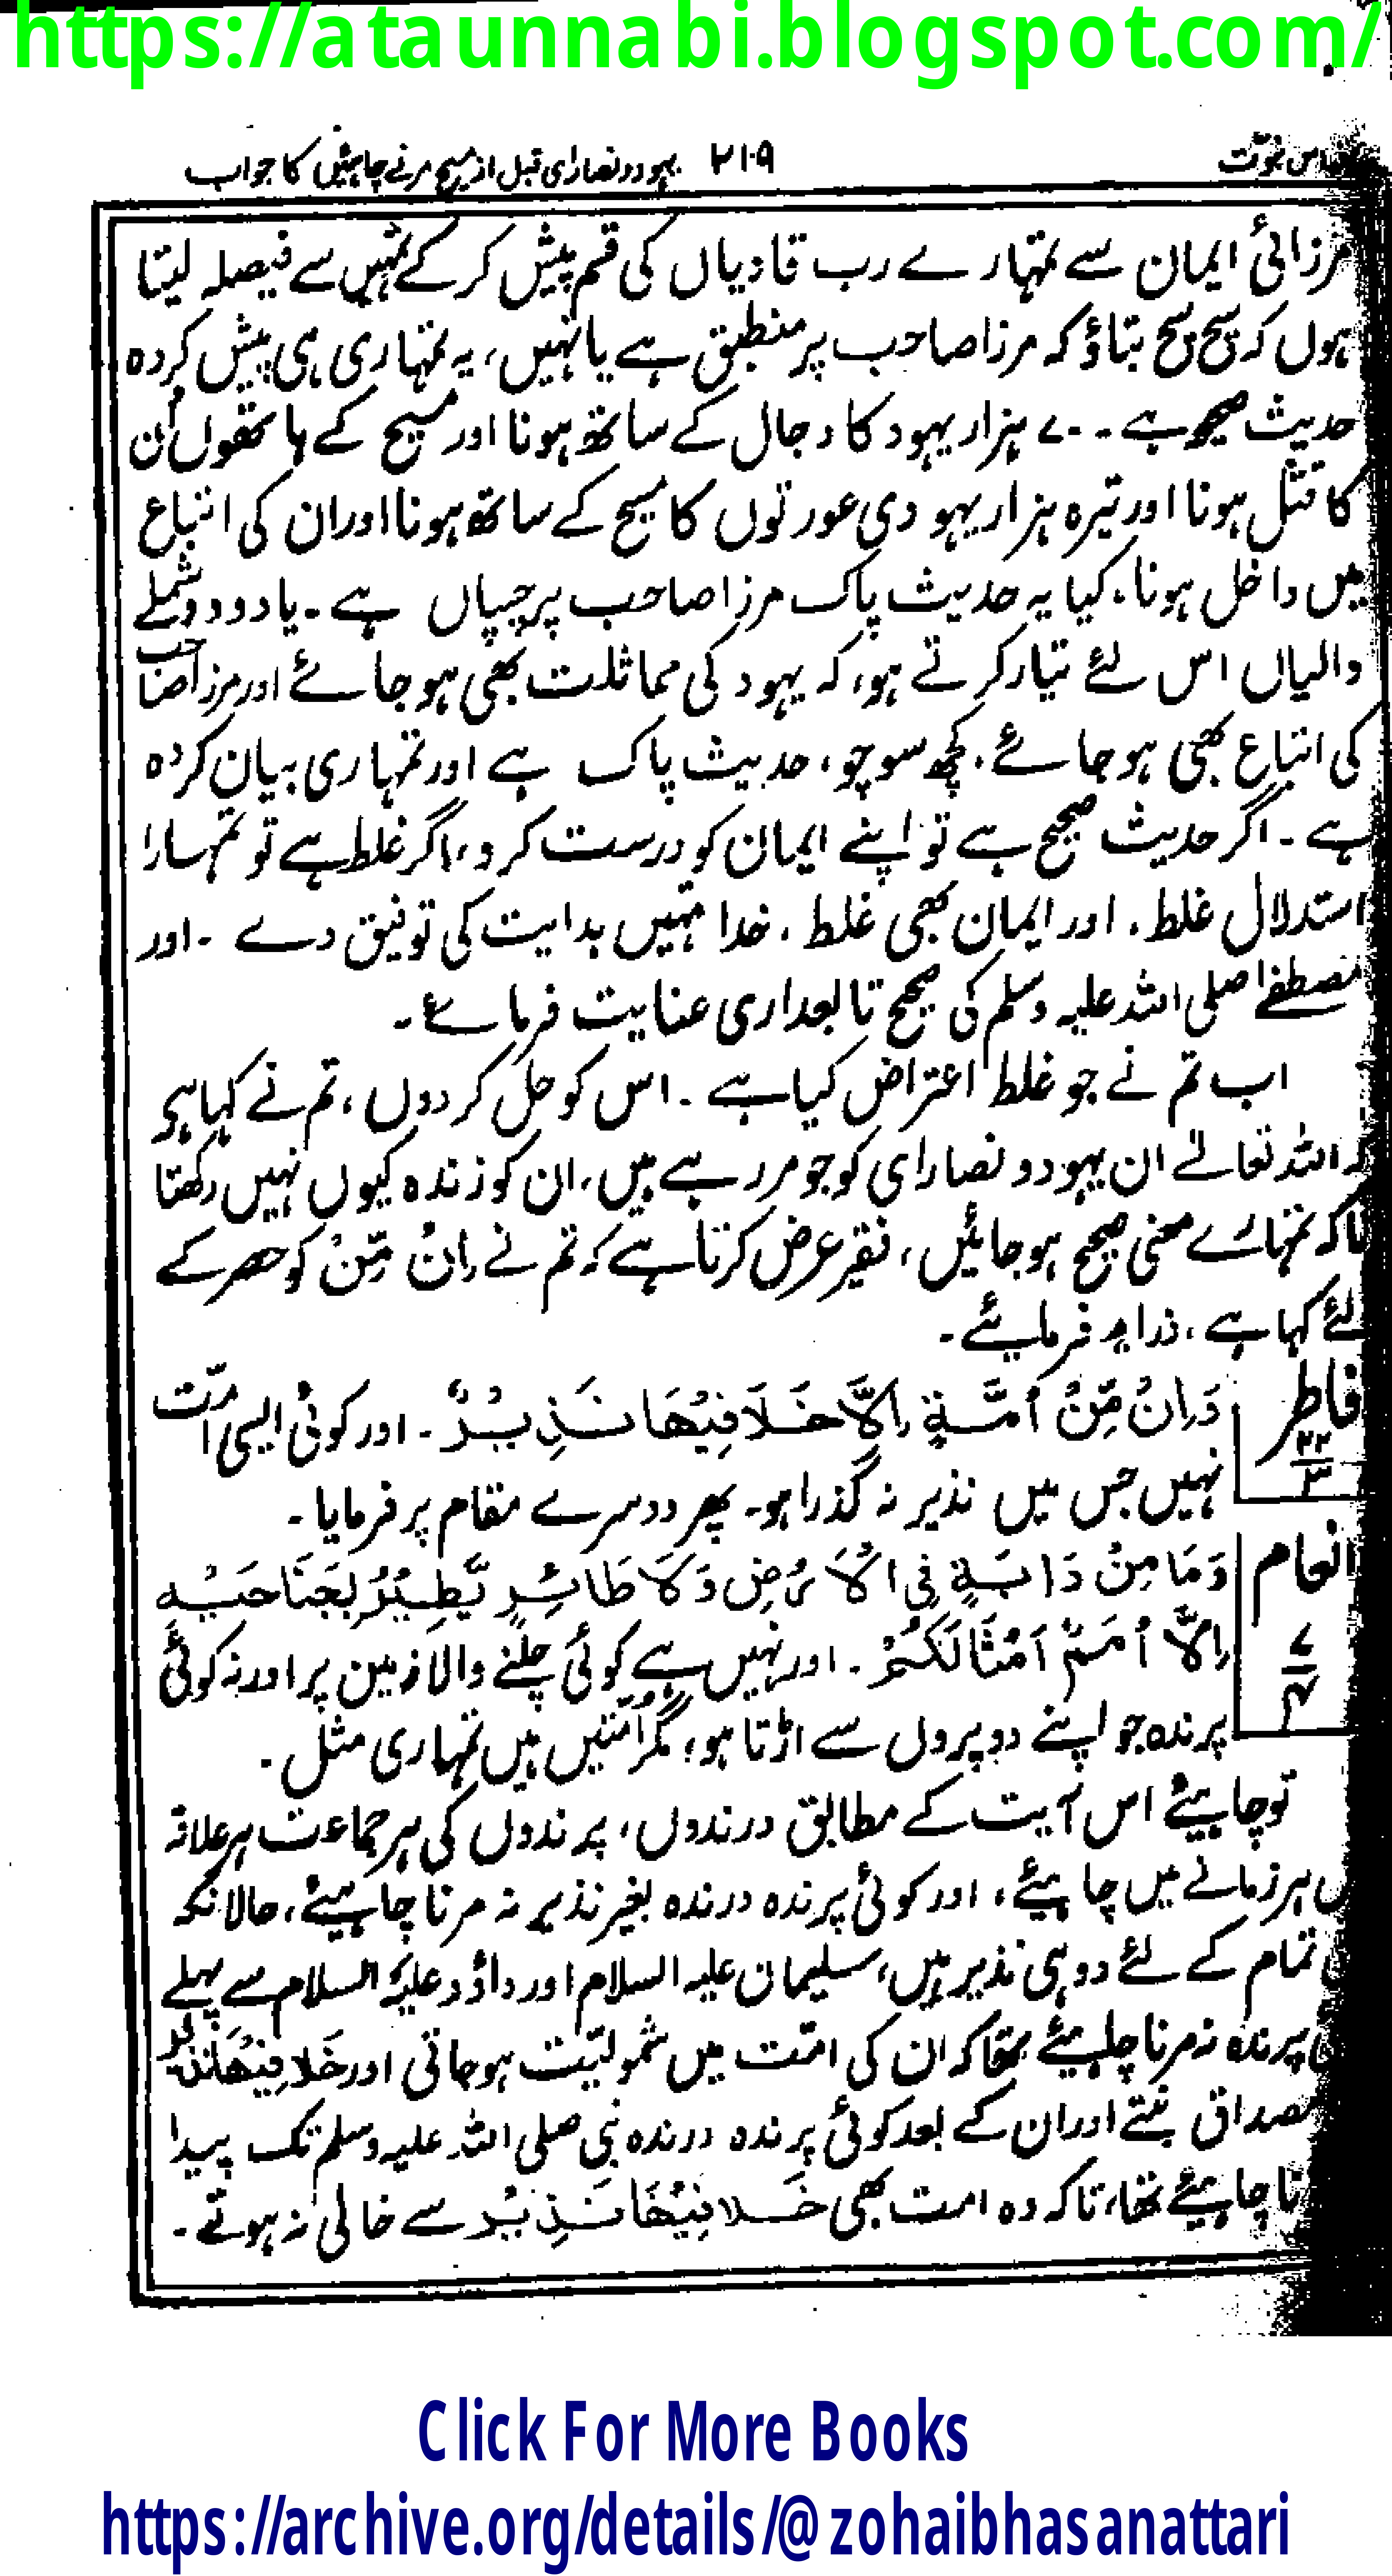 https://ataunnabi.blogspot.com/
نبوّت ۲۱۰۹ یہود و نصارٰی قبل از مسیح مرنے چاہئیں کا جواب
مرزائی ایمان سے تمہارے رب قادیاں کی قسم پیش کر کے تمہیں سے فیصلہ لیتا
ہوں کہ سچ سچ بتاؤ کہ مرزا صاحب پر منطبق ہے یا نہیں، یہ تمہاری ہی پیش کردہ
حدیث صحیح ہے۔ ۷۰ ہزار یہود کا دجال کے ساتھ ہونا اور مسیح کے ہاتھوں اُن
کا قتل ہونا اور تیرہ ہزار یہودی عورتوں کا مسیح کے ساتھ ہونا اور ان کی اتباع
میں داخل ہونا، کیا یہ حدیث پاک مرزا صاحب پر چسپاں ہے۔ یا دو دو شملے
والیاں اس لئے تیار کرتے ہو، کہ یہود کی مماثلت بھی ہو جائے اور مرزا صاحب
کی اتباع بھی ہو جائے، کچھ سوچو، حدیث پاک ہے اور تمہاری بیان کردہ
ہے۔ اگر حدیث صحیح ہے تو اپنے ایمان کو درست کرو، اگر غلط ہے تو تمہارا
استدلال غلط، اور ایمان بھی غلط، خدا تمہیں ہدایت کی توفیق دے۔ اور
مصطفےٰ صلی اللہ علیہ وسلم کی صحیح تابعداری عنایت فرمائے۔
اب تم نے جو غلط اعتراض کیا ہے۔ اس کو حل کر دوں، تم نے کہا ہی
کہ اللہ تعالےٰ ان یہود و نصاراٰی کو جو مر رہے ہیں، ان کو زندہ کیوں نہیں رکھتا
تاکہ تمہارے معنی صحیح ہو جائیں، فقیر عرض کرتا ہے کہ تم نے اِنْ مِّنْ کو حصر کے
لئے کہا ہے، ذرا یہ فرمایئے۔
فاطر ۲۲/۳ وَاِنْ مِّنْ اُمَّةٍ اِلَّا خَلَا فِيْهَا نَذِيْرٌ۔ اور کوئی ایسی امّت
نہیں جس میں نذیر نہ گذرا ہو۔ پھر دوسرے مقام پر فرمایا۔
انعام ۷/۴ وَمَا مِنْ دَابَّةٍ فِي الْاَرْضِ وَلَا طَائِرٍ يَّطِيْرُ بِجَنَاحَيْهِ
اِلَّا اُمَمٌ اَمْثَالُكُمْ۔ اور نہیں ہے کوئی چلنے والا زمین پر اور نہ کوئی
پرندہ جو اپنے دو پروں سے اڑتا ہو؛ مگر اُمتیں ہیں تمہاری مثل۔
تو چاہیئے اس آیت کے مطابق درندوں، پرندوں کی ہر جماعت ہر علاقہ
ہر زمانے میں چاہیئے، اور کوئی پرندہ درندہ بغیر نذیر نہ مرنا چاہیئے، حالانکہ
تمام کے لئے دو ہی نذیر ہیں، سلیمان علیہ السلام اور داؤد علیہ السلام سے پہلے
پرندہ نہ مرنا چاہیئے تھا کہ ان کی امّت میں شمولیّت ہو جاتی اور خَلَا فِيْهَا نَذِيْر
مصداق بنتے اور ان کے بعد کوئی پرندہ درندہ نبی صلی اللہ علیہ وسلم تک پیدا
نا چاہیئے تھا، تاکہ وہ امت بھی خَلَا فِيْهَا نَذِيْر سے خالی نہ ہوتے۔
Click For More Books
https://archive.org/details/@zohaibhasanattari